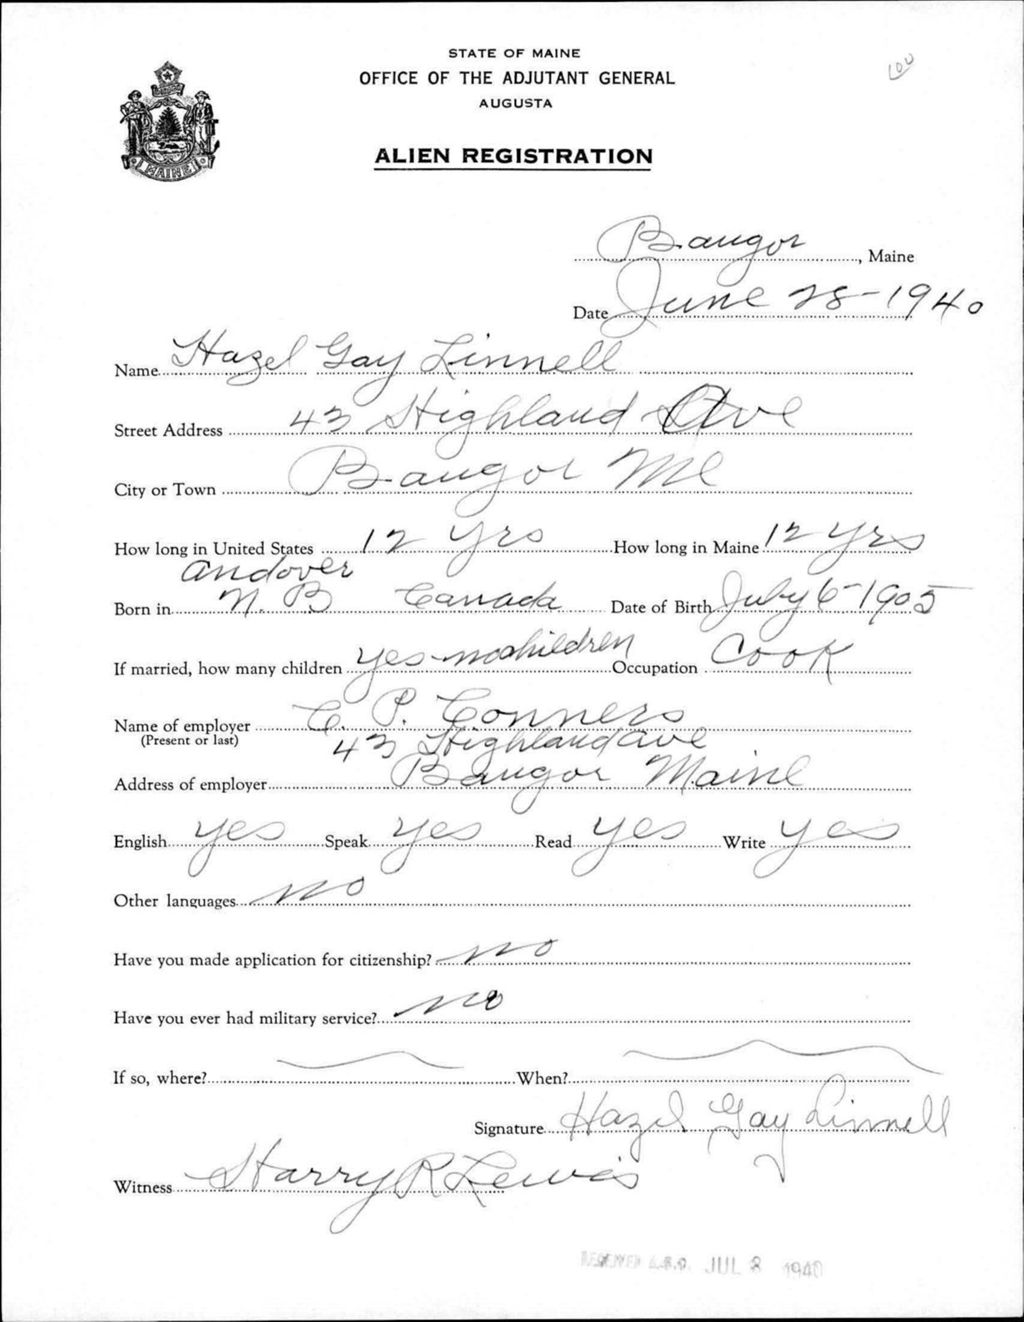 STATE OF MAINE
OFFICE OF THE ADJUTANT GENERAL
AUGUSTA
ALIEN REGISTRATION
MAINE
Bangor, Maine
Date June 28-1940
Name Hazel Gay Linnell
Street Address 43 Highland Ave
City or Town Bangor Me
How long in United States 12 yrs How long in Maine 12 yrs
Andover
Born in N.B Canada Date of Birth July 6-1905
If married, how many children yes-no children Occupation Cook
Name of employer C. P. Conners
(Present or last) 43 Highland Ave
Address of employer Bangor Maine
English yes Speak yes Read yes Write yes
Other languages no
Have you made application for citizenship? no
Have you ever had military service? no
If so, where? When?
Signature Hazel Gay Linnell
Witness Harry R Lewis
RECEIVED A.G.O. JUL 8 1940